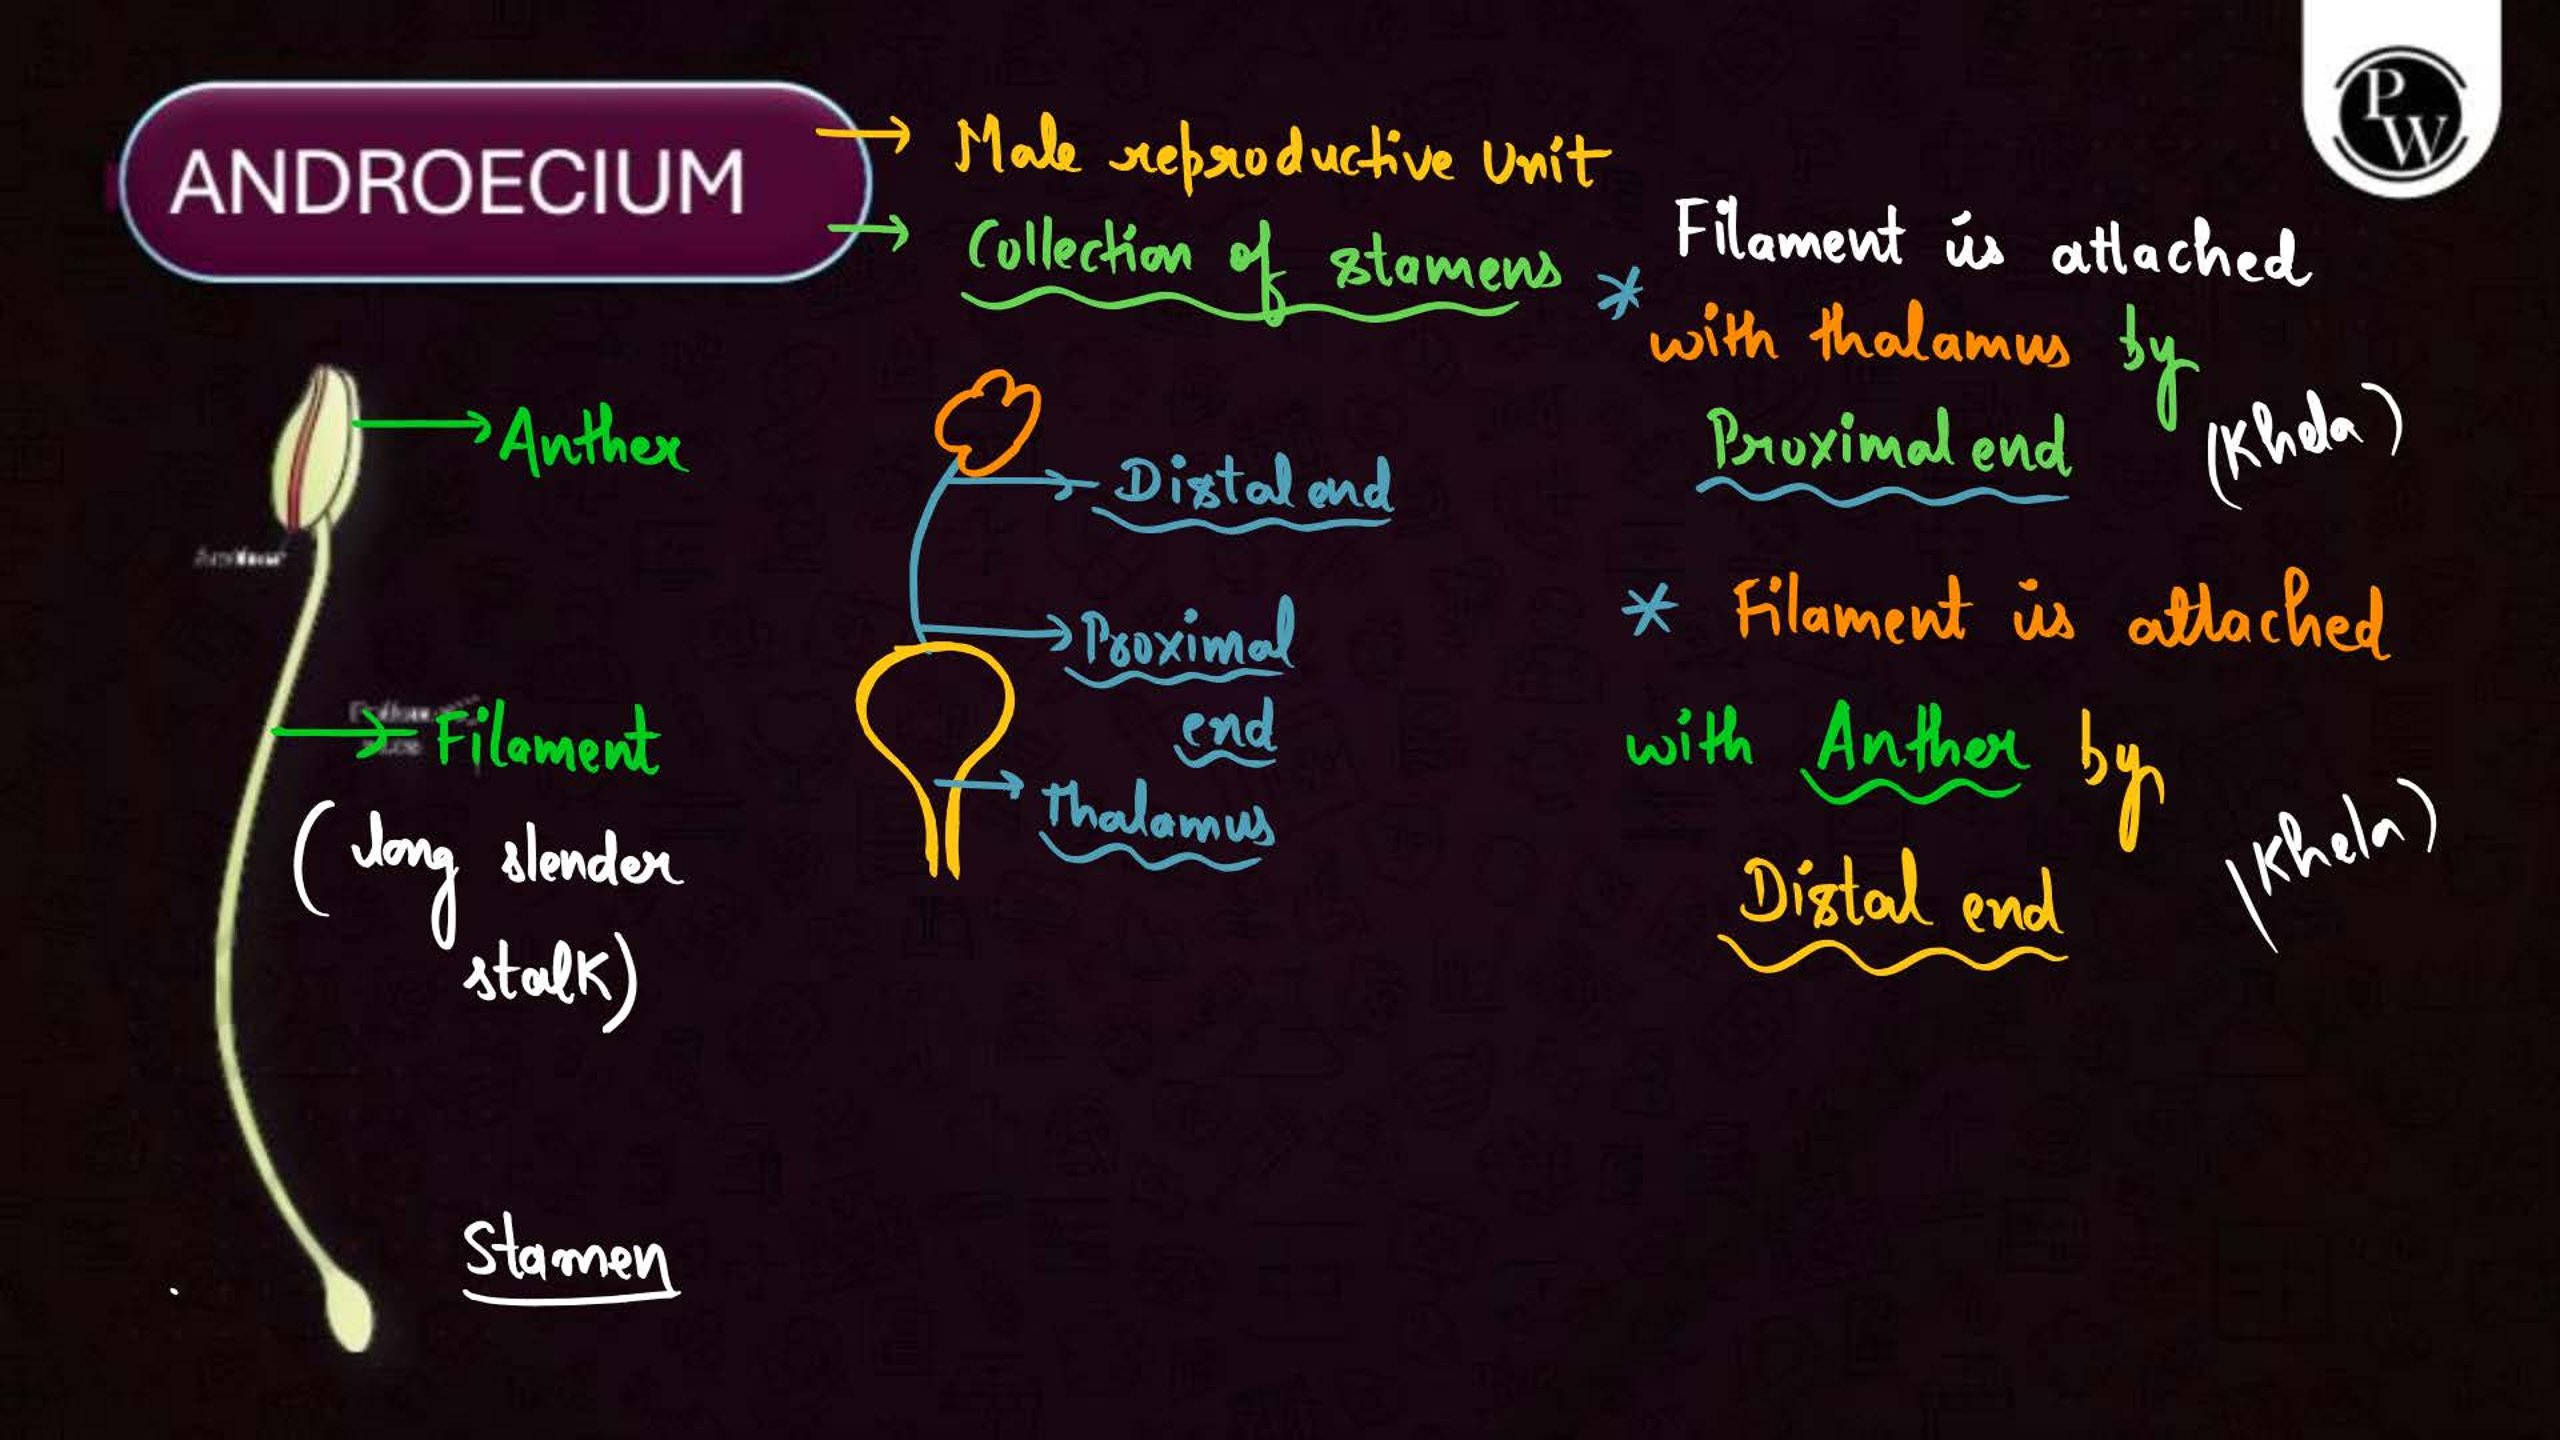 ANDROECIUM
Male reproductive Unit
Collection of stamens
Anther
Filament
(long slender
stalk)
Stamen
Distal end
Proximal
end
thalamus
* Filament is attached
with thalamus by
Proximal end
(Khela)
* Filament is attached
with Anther by
Distal end
(Khela)
PW